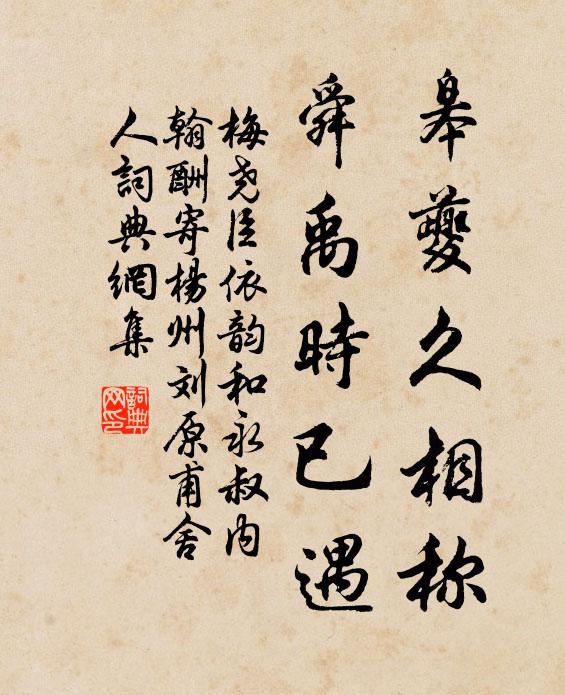 皋夔久相称
舜禹時已遇
梅尧臣依韵和永叔内
翰酬寄楊州刘原甫舍
人詞典網集
詞典网印